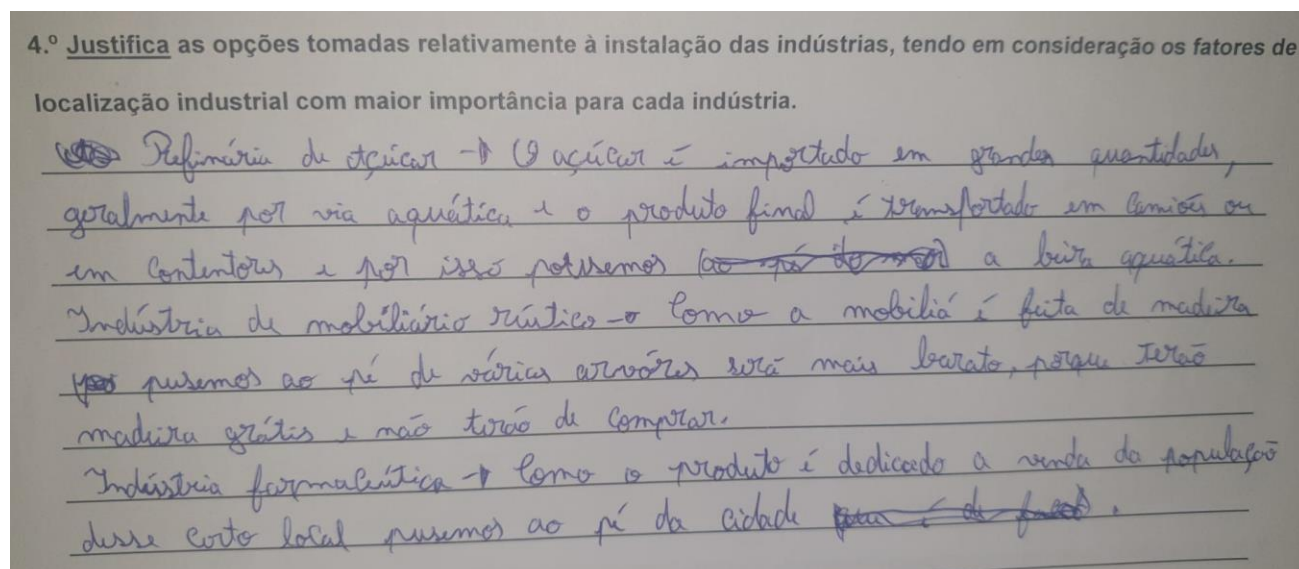 4.º Justifica as opções tomadas relativamente à instalação das indústrias, tendo em consideração os fatores de
localização industrial com maior importância para cada indústria.
Refinária de açúcar → O açúcar é importado em grandes quantidades,
geralmente por via aquática e o produto final é transportado em camiões ou
em contentores e por isso potusemos (ao pé do mar) a beira aquática.
Indústria de mobiliário rústico → Como a mobiliá é feita de madeira
pusemos ao pé de várias arvóres será mais barato, porque terão
madeira grátis e não terão de comprar.
Indústria farmacêutica → Como o produto é dedicado a venda da população
desse certo local pusemos ao pé da cidade .